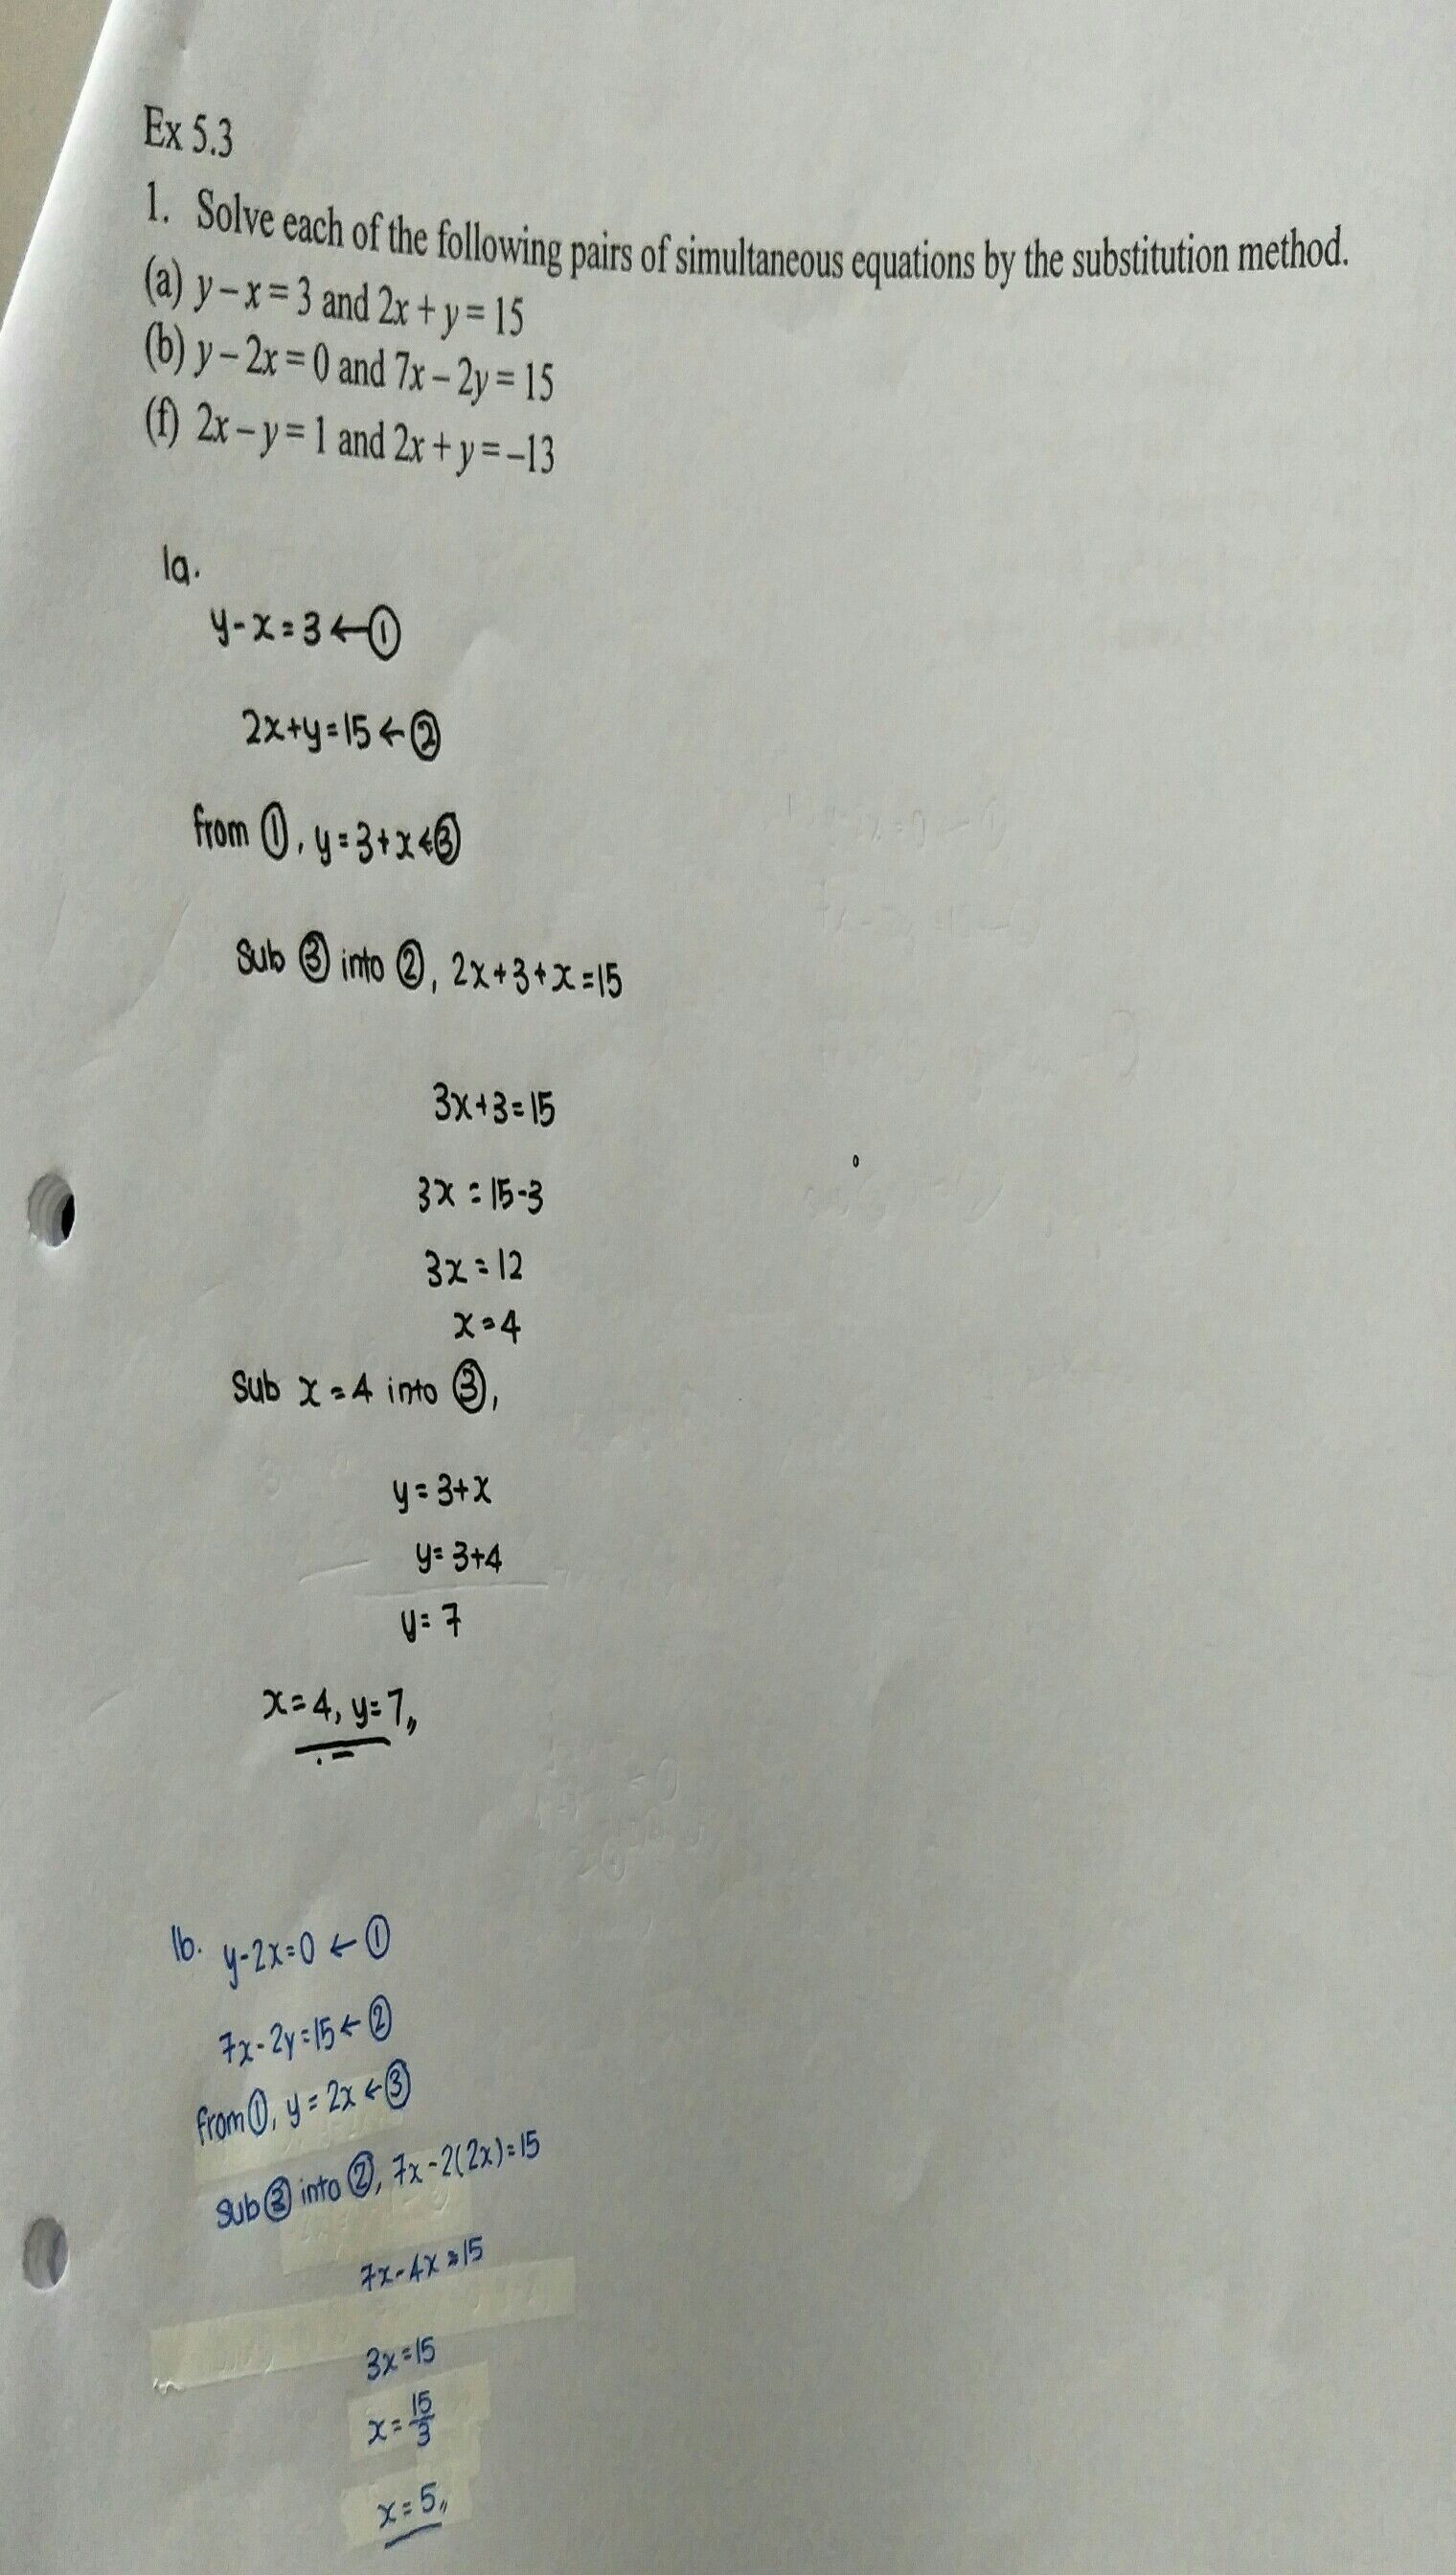 Ex 5.3
1. Solve each of the following pairs of simultaneous equations by the substitution method.
(a) y – x = 3 and 2x + y = 15
(b) y – 2x = 0 and 7x – 2y = 15
(f) 2x – y = 1 and 2x + y = –13
1a.
y-x=3 ← ①
2x+y=15 ← ②
from ①, y=3+x ← ③
Sub ③ into ②, 2x+3+x=15
3x+3=15
3x=15-3
3x=12
x=4
Sub x=4 into ③,
y=3+x
y=3+4
y=7
x=4, y=7,,
1b. y-2x=0 ← ①
7x-2y=15 ← ②
from ①, y=2x ← ③
Sub ③ into ②, 7x-2(2x)=15
7x-4x=15
3x=15
x=15/3
x=5,,